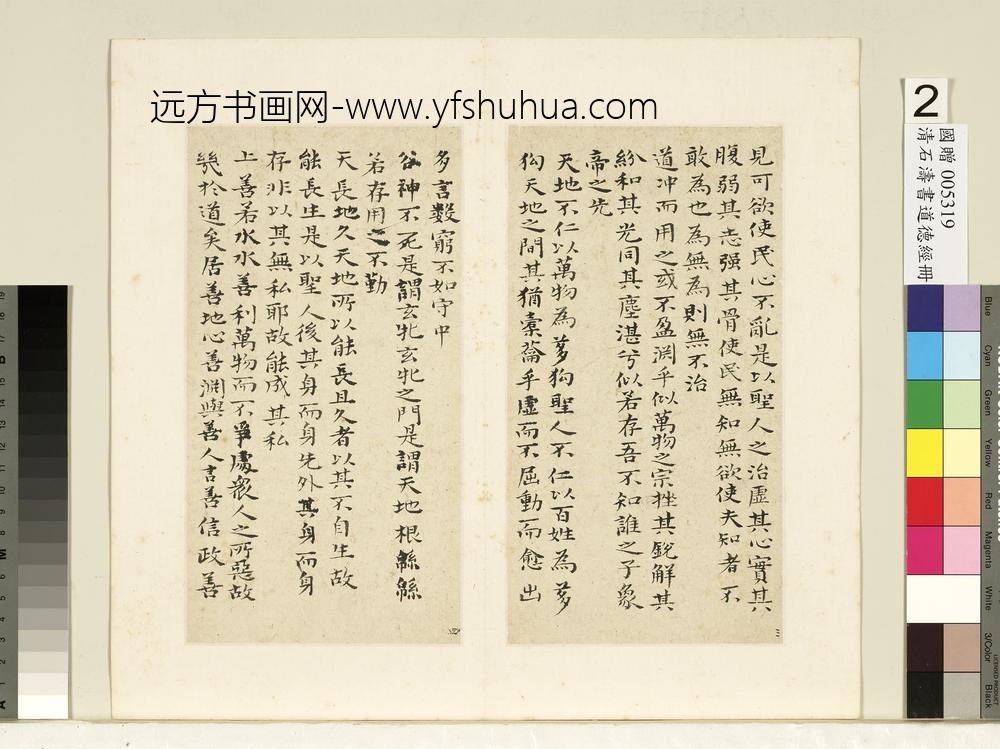 远方书画网-www.yfshuhua.com
2
國贈 005319
清石濤書道德經冊
見可欲使民心不亂是以聖人之治虛其心實其
腹弱其志强其骨使民無知無欲使夫知者不
敢為也為無為則無不治
道冲而用之或不盈淵乎似萬物之宗挫其銳解其
紛和其光同其塵湛兮似若存吾不知誰之子象
帝之先
天地不仁以萬物為芻狗聖人不仁以百姓為芻
狗天地之間其猶橐籥乎虛而不屈動而愈出
三
多言數窮不如守中
谷神不死是謂玄牝玄牝之門是謂天地根緜緜
若存用之不勤
天長地久天地所以能長且久者以其不自生故
能長生是以聖人後其身而身先外其身而身
存非以其無私耶故能成其私
上善若水水善利萬物而不爭處衆人之所惡故
幾於道矣居善地心善淵與善人言善信政善
四
Blue
Cyan
Green
Yellow
Red
Magenta
White
3/Color
Black